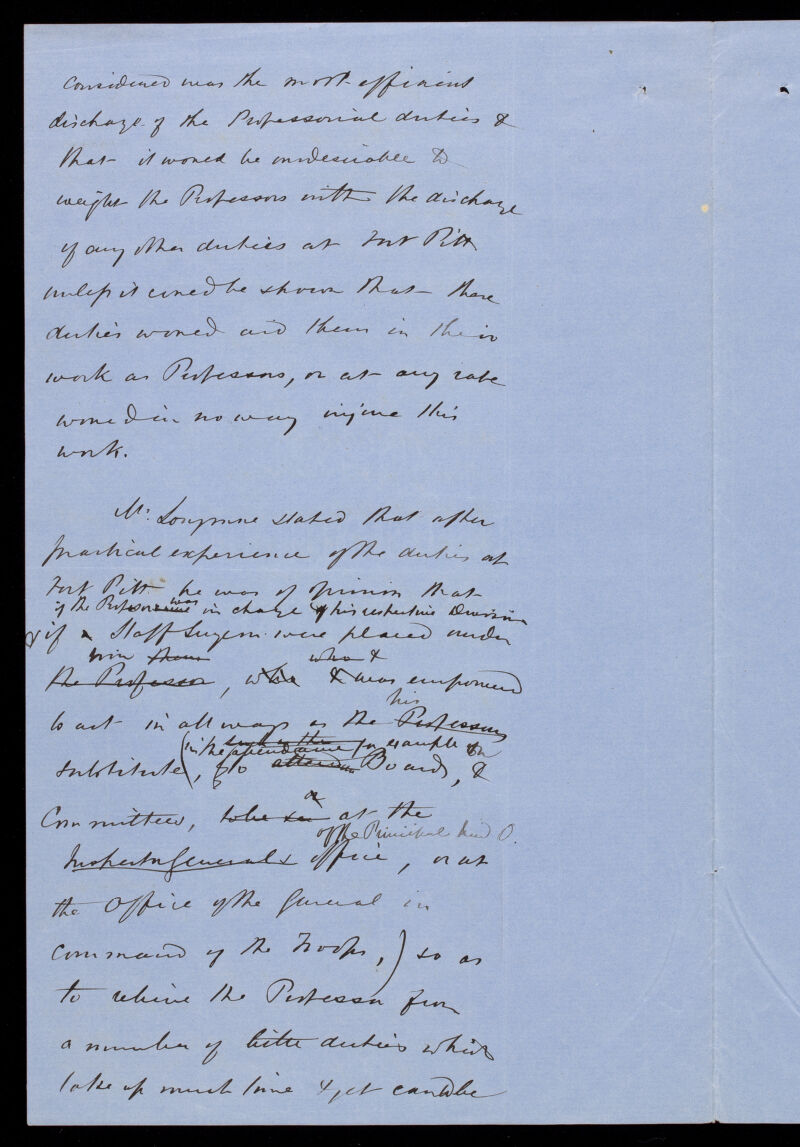 considered was the most efficient
discharge of the Professorial duties &
that it would be undesirable to
weight the Professors with the discharge
of any other duties at Fort Pitt
unless it could be shown that these
duties would aid them in their
work as Professors, or at any rate
would in no way injure this
work.
Mr. Longmore stated that after
practical experience of the duties at
Fort Pitt he was of opinion that
if the Professor was in charge of his respective Division
& if a Staff Surgeon were placed under
him them who &
the Professor, who & was empowered
his
to act in all ways as the Professors
(in the attendance for example on
substitute, to attend Boards, &
or
Committees, to be at the
of the Principal Med O.
Inspector Generals office, or at
the Office of the General in
command of the Troops,) so as
to relieve the Professor from
a number of little duties which
take up much time & yet can be